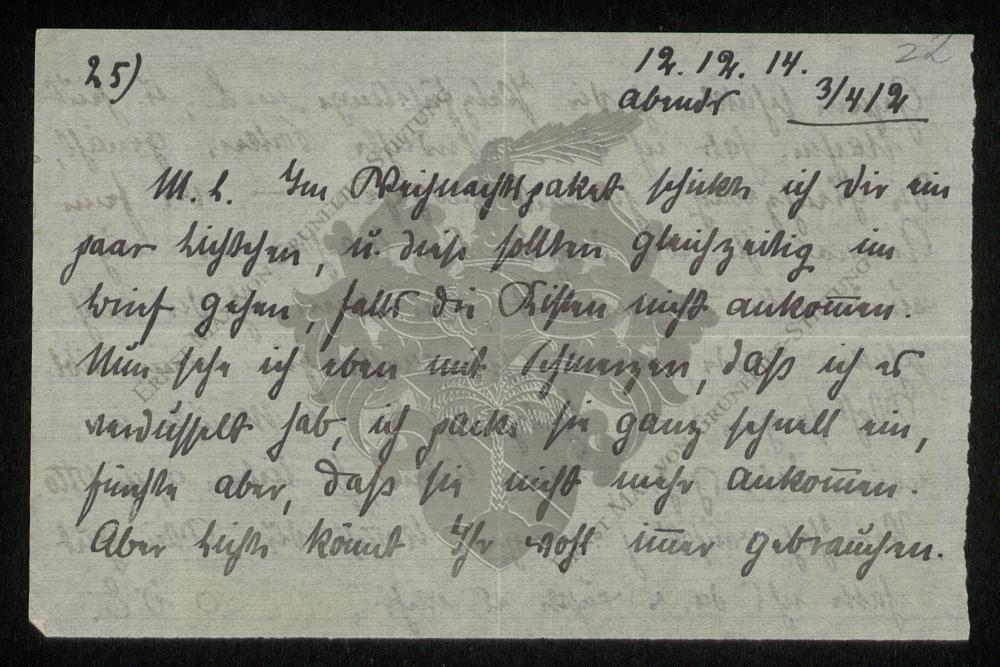 25)
12. 12. 14.
22
abends
3/4 12
M. L. Im Weihnachtspaket schickte ich Dir ein
paar Lichtchen, u. diese sollten gleichzeitig im
Brief gehen, falls die Kisten nicht ankom̅en.
Nun sehe ich eben mit Schmerzen, daß ich es
verdusselt hab, ich packe sie ganz schnell ein,
fürchte aber, daß sie nicht mehr ankom̅en.
Aber Lichte könnt Ihr wohl im̅er gebrauchen.